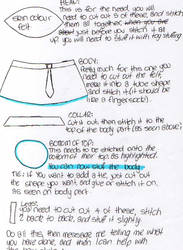 HEAD:
This is for the head, you will
need to cut out 2 of these, and stitch
them all together
just before you stitch it all
up, you will need to stuff it with toy stuffing
skin colour
felt
BODY:
Pretty much for this one you
need to cut out the felt,
make it into a tube shape
and stitch it (it should be
like a finger sock).
COLLAR:
Cut it out then stitch it to the
top of the body part (as seen above)
BOTTOM OF TOP:
This needs to be stitched onto the
bottom of their top. As highlighted.
TIE: If you want to add a tie, just cut out
the shape you want and glue or stitch it on.
As seen on body part
LEGS:
You need to cut out 4 of these, stitch
2 back to back, and stuff it slightly.
Do all this, then message me telling me what
you have done, and then I can help with